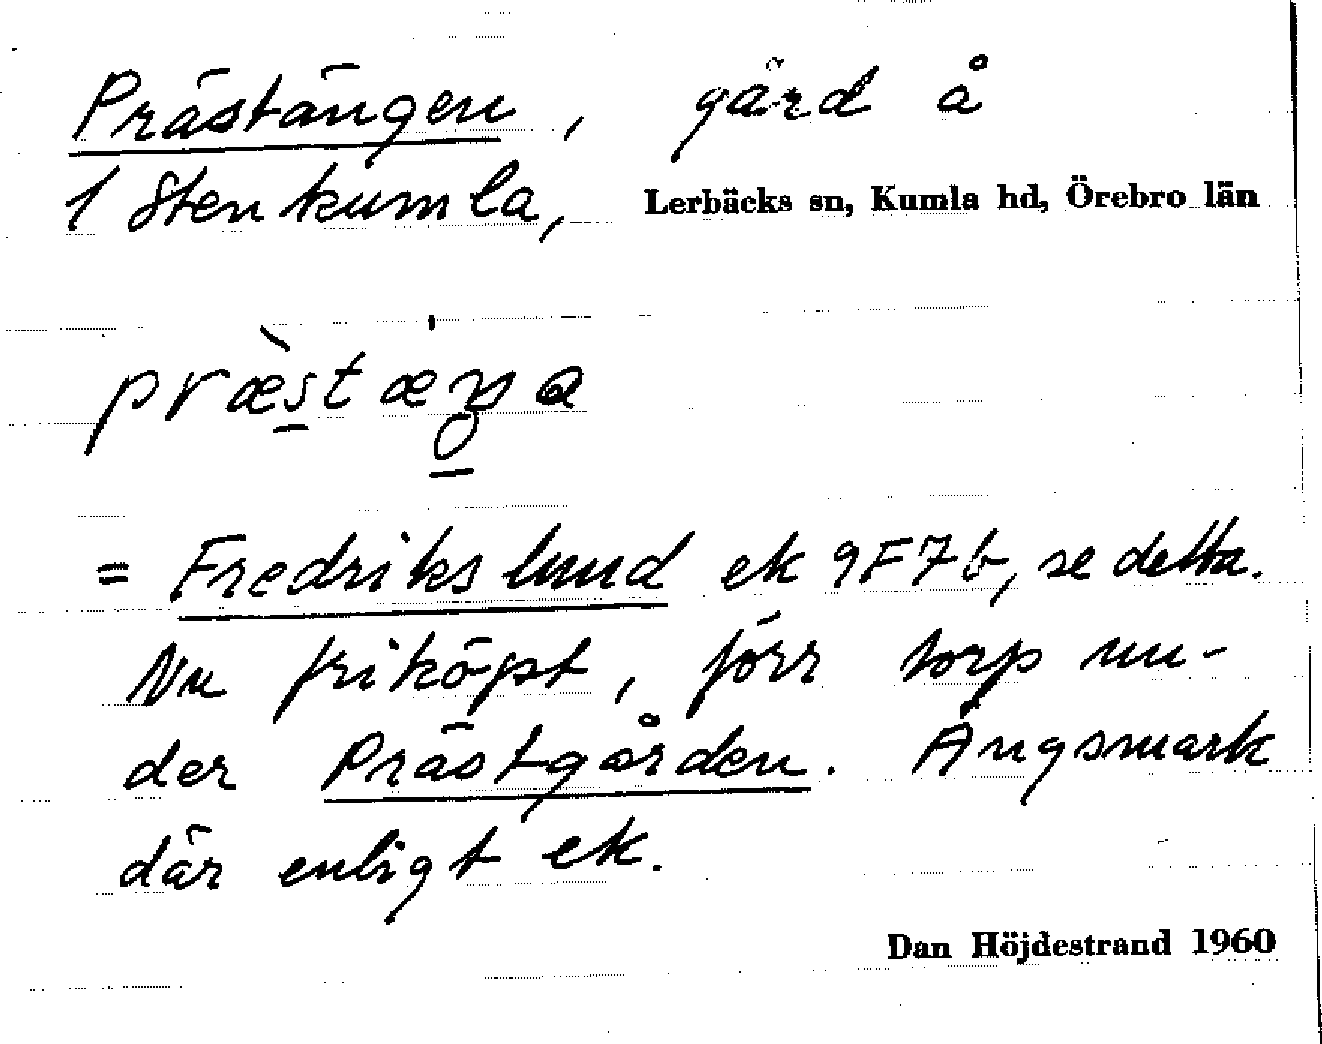 Prästängen, gård å
1 Stenkumla, Lerbäcks sn, Kumla hd, Örebro län
= Fredrikslund ek 9F7b, se detta.
Nu friköpt, förr torp un-
der Prästgården. Ängsmark
där enligt ek.
Dan Höjdestrand 1960